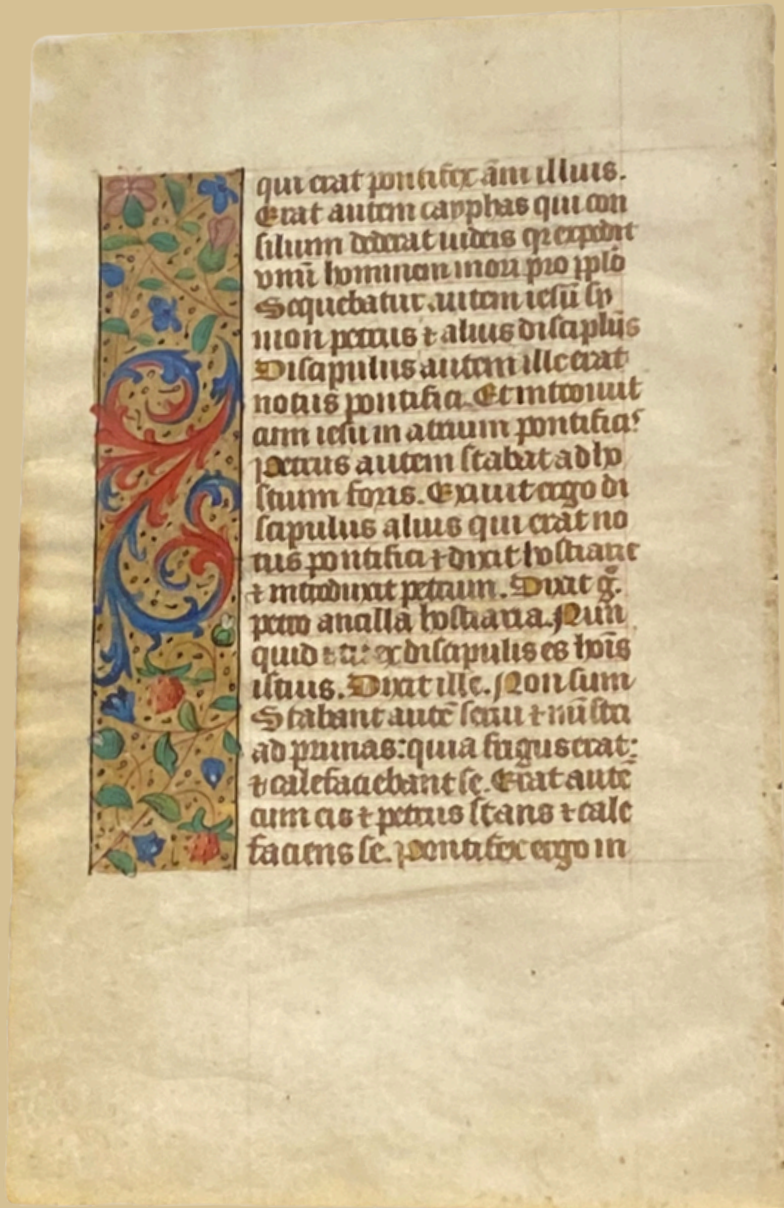 qui erat pontifex ãni illius.
Erat autem cayphas qui con
silium dederat iudeis qr expedit
vnũ hominem mori pro pplo
Sequebatur autem iesũ sy
mon petrus ⁊ alius discipl̃us
Discipulus autem ille erat
notus pontifici. Et introiuit
cum iesu in atrium pontificis
Petrus autem stabat ad ho
stium foris. Exiuit ergo di
scipulus alius qui erat no
tus pontifici ⁊ dixit hostiarie
⁊ introduxit petrum. Dixit g̃.
petro ancilla hostiaria. Nun
quid ⁊ tu ex discipulis es hoĩs
istius. Dixit ille. Non sum
Stabant autẽ serui ⁊ mĩstri
ad prunas: quia frigus erat:
⁊ calefaciebant se. Erat autẽ
cum eis ⁊ petrus stans ⁊ cale
faciens se. Pontifex ergo in